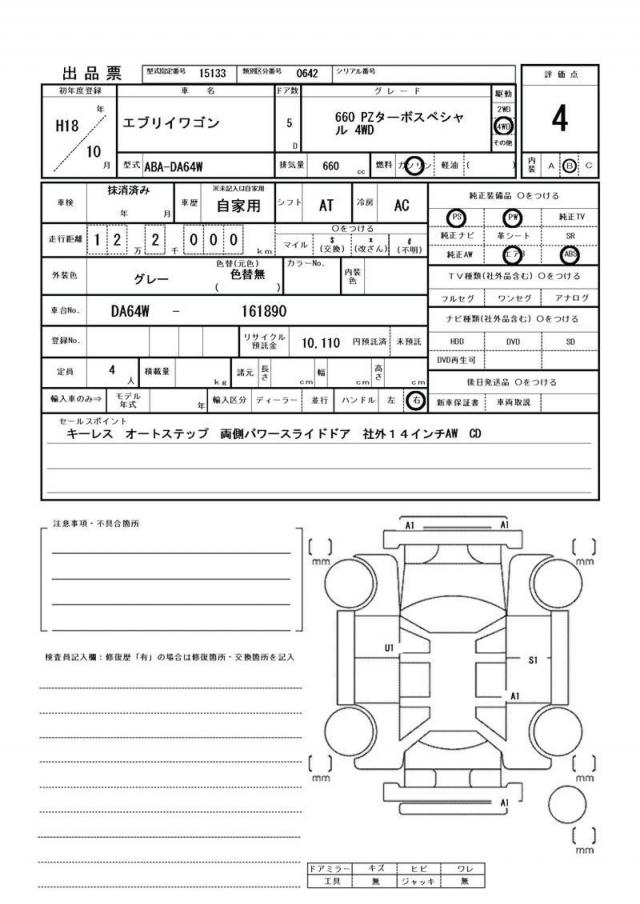 出品票 型式指定番号 15133 類別区分番号 0642 シリアル番号
評価点
初年度登録 車名 ドア数 グレード 駆動
H18 年 エブリイワゴン 5 D 660 PZターボスペシャル 4WD 2WD 4WD その他 4
10 月 型式 ABA-DA64W 排気量 660 cc 燃料 ガソリン 軽油 ( ) 内装 A B C
車検 抹消済み 年 月 車歴 ※未記入は自家用 自家用 シフト AT 冷房 AC
純正装備品 〇をつける
PS PW 純正TV
走行距離 12万2千000km 〇をつける マイル $(交換) x(改ざん) #(不明)
純正ナビ 革シート SR
純正AW エアB ABS
外装色 グレー 色替(元色) 色替無 ( ) カラーNo. 内装色
TV種類(社外品含む) 〇をつける
フルセグ ワンセグ アナログ
車台No. DA64W - 161890
ナビ種類(社外品含む) 〇をつける
登録No. リサイクル預託金 10,110 円預託済 未預託
HDD DVD SD
DVD再生可
定員 4 人 積載量 kg 諸元 長さ cm 幅 cm 高さ cm
後日発送品 〇をつける
輸入車のみ⇒ モデル年式 年 輸入区分 ディーラー 並行 ハンドル 左 右
新車保証書 車両取説
セールスポイント
キーレス オートステップ 両側パワースライドドア 社外14インチAW CD
注意事項・不具合箇所
A1 A1
mm mm
検査員記入欄:修復歴「有」の場合は修復箇所・交換箇所を記入
U1
S1
A1
mm mm
A1
mm
ドアミラー キズ ヒビ ワレ
工具 無 ジャッキ 無